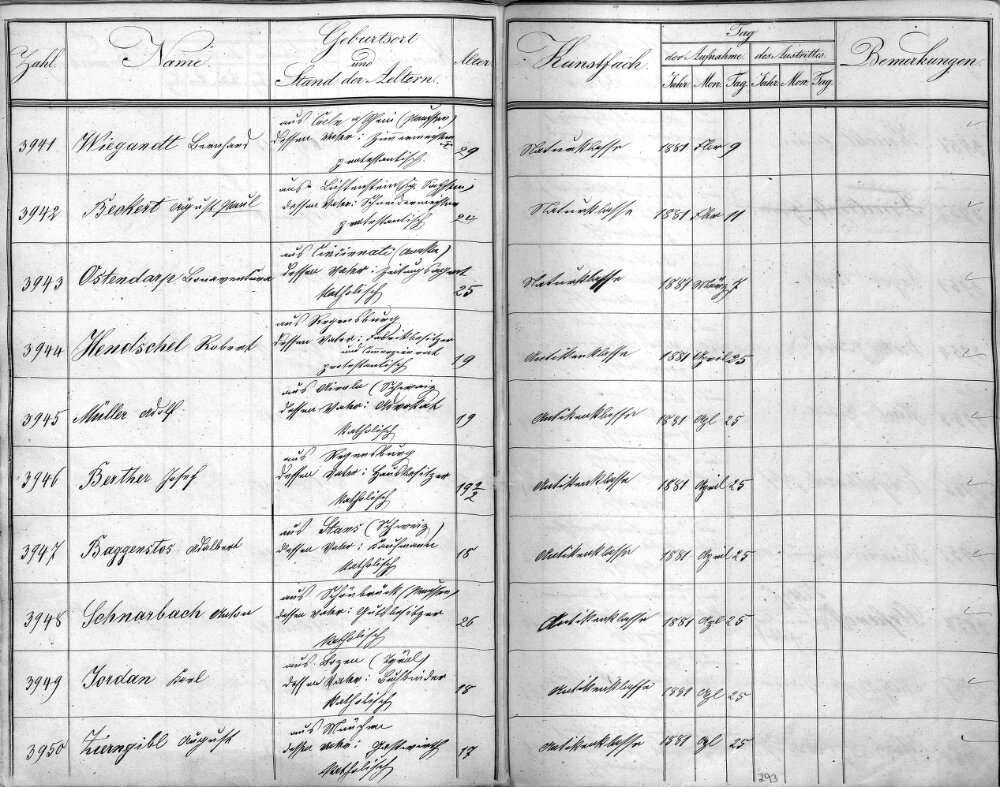 Zahl. Name. Geburtsort und Stand der Aeltern. Alter Kunstfach. Tag der Aufnahme. des Austrittes. Bemerkungen.
Jahr Mon. Tag. Jahr Mon. Tag.
aus Coeln a/Rhein (Preussen)
3941 Wiegandt Bernhard dessen Vater: 29 Naturklasse 1881 Fbr 9
protestantisch
aus Lichtenstein, Kg. Sachsen,
3942 Beckert August Paul dessen Vater: Schneidermeister 24 Naturklasse 1881 Fbr 11
protestantisch
aus Cincinnati (Amerika)
3943 Ostendarp Bonaventura dessen Vater: Zeitungsagent 25 Naturklasse 1881 März 7
katholisch
aus Regensburg
3944 Hendschel Robert dessen Vater: Fabrikbesitzer 19 Antikenklasse 1881 April 25
und Commerzienrat
protestantisch
aus Airolo (Schweiz
3945 Müller Adolf. dessen Vater: Advokat 19 Antikenklasse 1881 Apl 25
katholisch
aus Regensburg
3946 Berther Josef dessen Vater: Hausbesitzer 19 Antikenklasse 1881 April 25
katholisch
aus Stans (Schweiz)
3947 Baggenstos Adalbert dessen Vater: Kaufmann 18 Antikenklasse 1881 April 25
katholisch
aus Schönbrück (Preussen,
3948 Schnarbach Anton dessen Vater: Gutsbesitzer 26 Antikenklasse 1881 Apl 25
katholisch
aus Bozen (Tyrol)
3949 Jordan Karl dessen Vater: Buchbinder 18 Antikenklasse 1881 Apl 25
katholisch
aus München
3950 Zierngibl August dessen Vater: Gastwirth 17 Antikenklasse 1881 Apl 25
katholisch
293